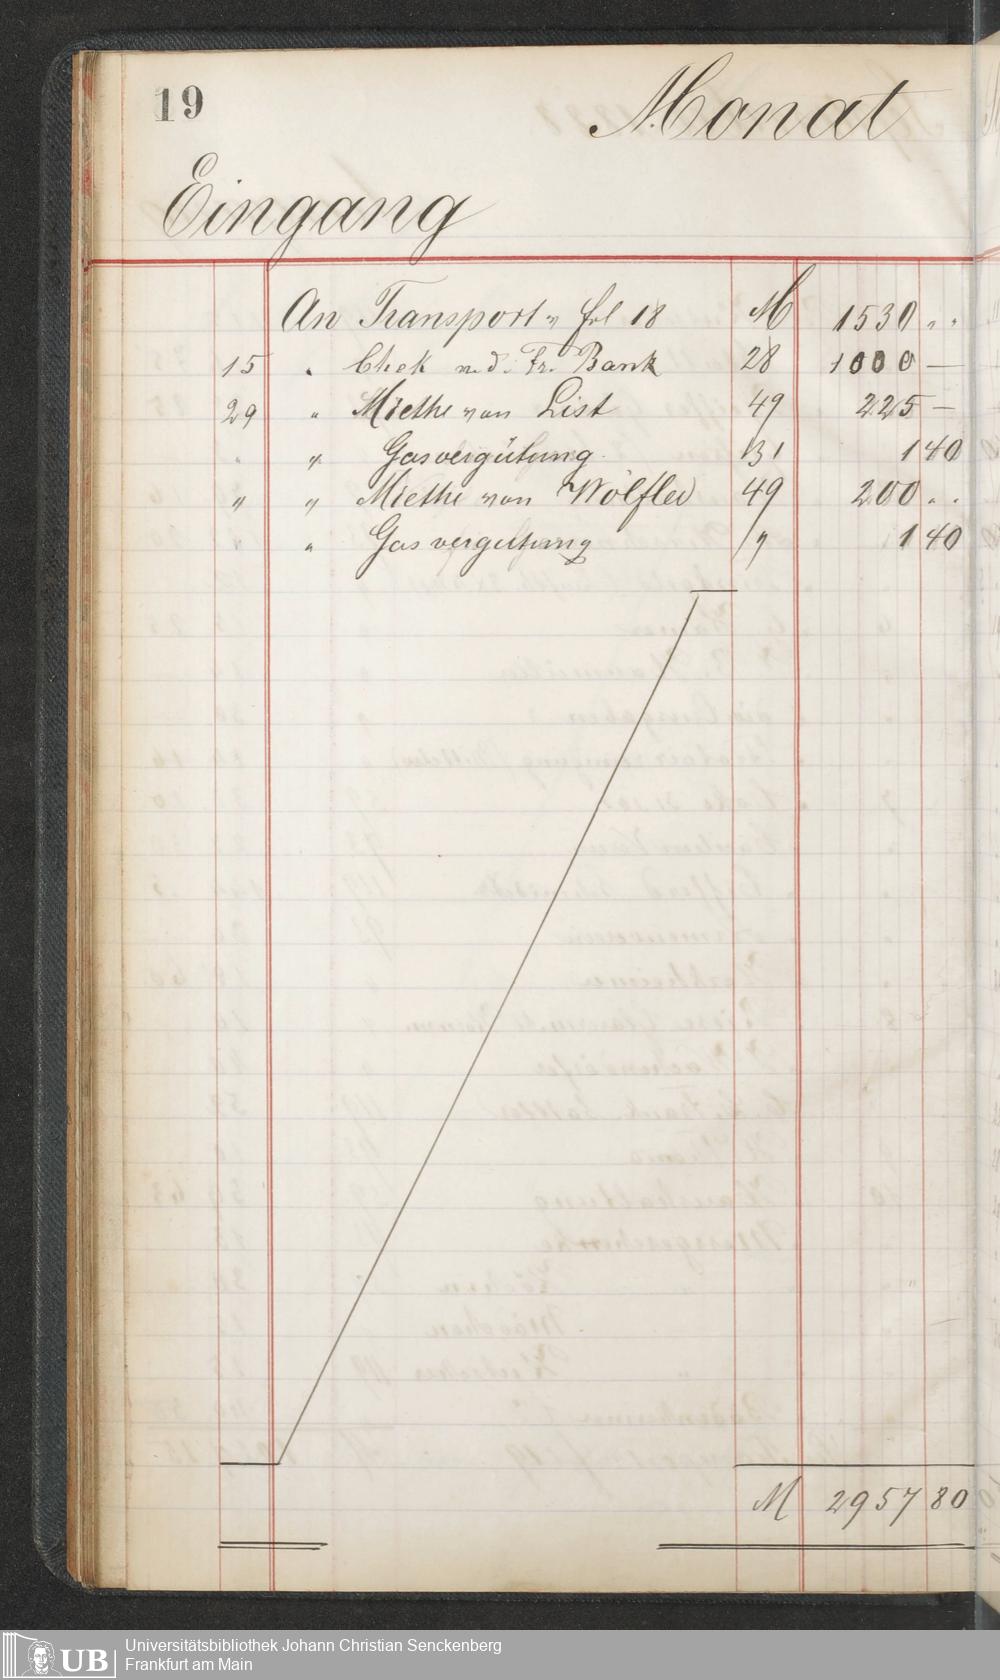 19
Monat
Eingang
An Transport v fol 18 M 1530 " "
15 " Chek n. d. Fr. Bank 28 1000 —
29 " Miethe von List 49 225 —
" " Gasvergütung 131 1 40
" " Miethe von Wölfler 49 200 " "
" " Gasvergütung " 1 40
M 2957 80
UB
Universitätsbibliothek Johann Christian Senckenberg
Frankfurt am Main